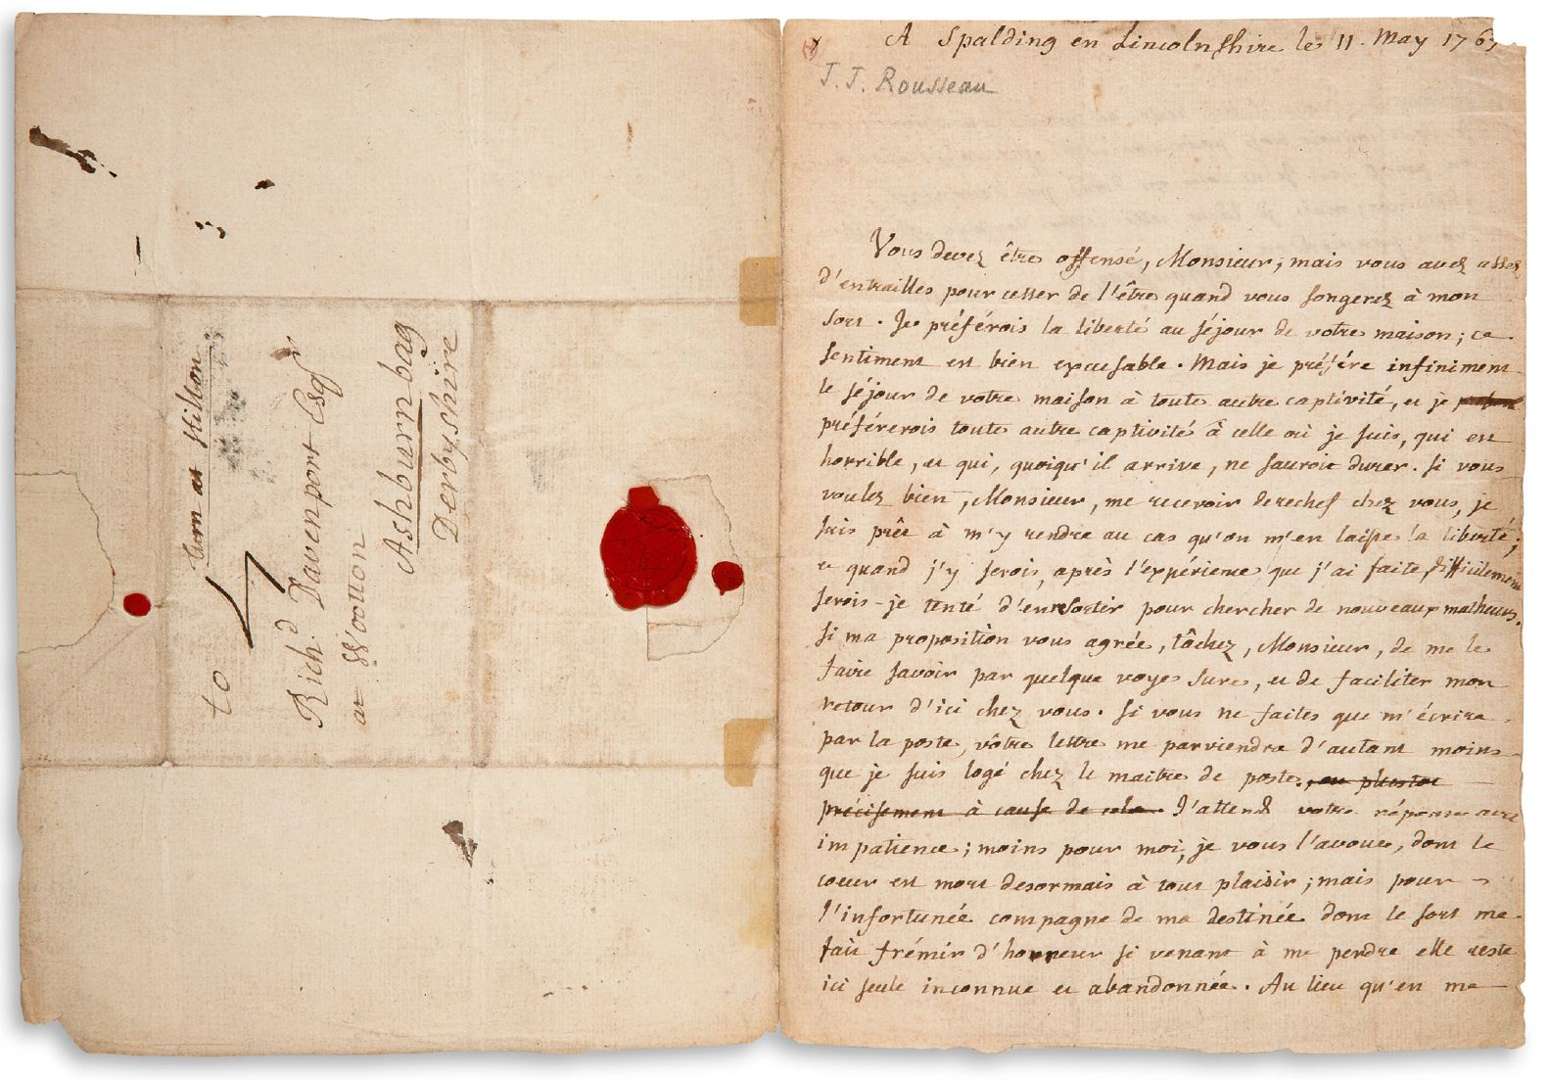 turn at Stilton
to
Rich.d Davenport Esqr
at Wootton
Ashburnbag
Derbyshire
A Spalding en Lincolnshire le 11. May 1767
J. J. Rousseau
Vous devez être offensé, Monsieur, mais vous avez assez
d'entrailles pour cesser de l'être quand vous songerez à mon
sort. Je préférois la liberté au séjour de votre maison; ce
sentiment est bien excusable. Mais je préfére infiniment
le séjour de votre maison à toute autre captivité, et je
préférerois toute autre captivité à celle où je suis, qui est
horrible, et qui, quoiqu'il arrive, ne sauroit durer. Si vous
voulez bien, Monsieur, me recevoir derechef chez vous, je
suis prêt à m'y rendre au cas qu'on m'en laisse la liberté;
et quand j'y serois, après l'expérience que j'ai faite, difficilement
serois-je tenté d'en resortir pour chercher de nouveaux malheurs.
Si ma proposition vous agrée, tâchez, Monsieur, de me le
faire savoir par quelque voye sure, et de faciliter mon
retour d'ici chez vous. Si vous ne faites que m'écrire
par la poste, vôtre lettre me parviendra d'autant moins
que je suis logé chez le maitre de poste, ou plustot
précisement à cause de cela. J'attends votre réponse avec
impatience; moins pour moi, je vous l'avoue, dont le
coeur est mort desormais à tout plaisir; mais pour
l'infortunée compagne de ma destinée dont le sort me
fait frémir d'horreur si venant à me perdre elle reste
ici seule inconnue et abandonnée. Au lieu qu'en me